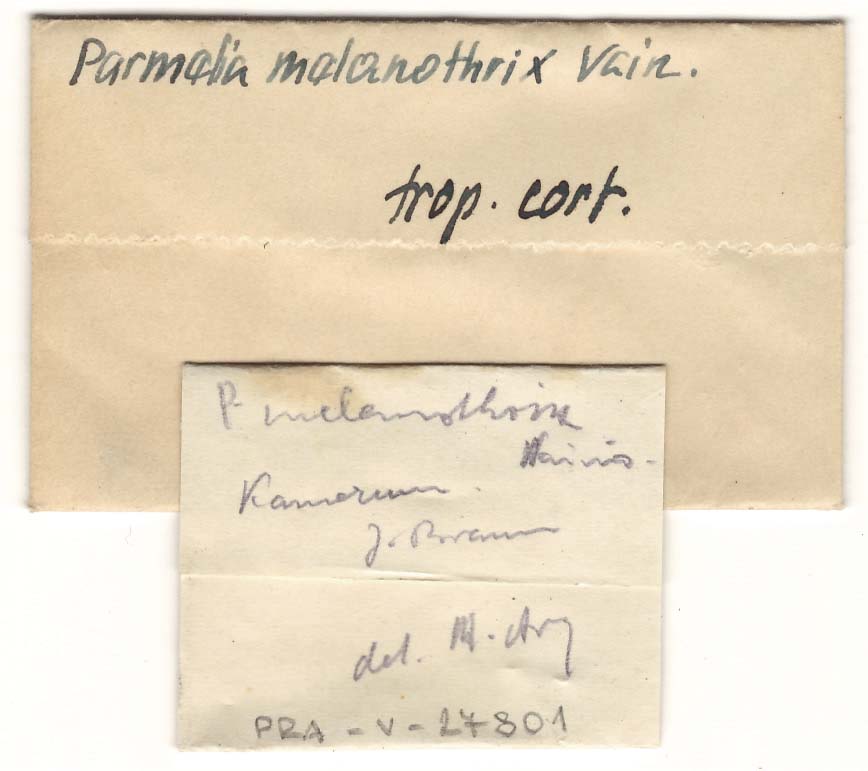 Parmelia melanothrix Vain.
trop. cort.
P. melanothrix
Kamerun.
J. Braun
det. M. Arg
PRA-V-27801